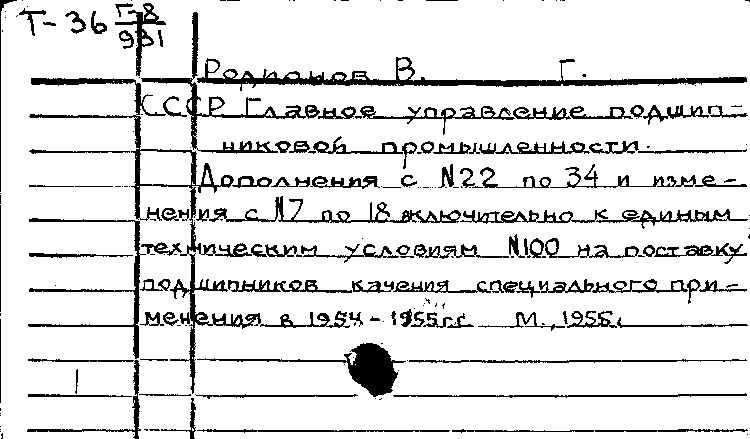 Т-36 Г-8
931
Родионов В. Г.
СССР Главное управление подшип-
никовой промышленности.
Дополнения с N22 по 34 и изме-
нения с N7 по 18 включительно к единым
техническим условиям N100 на поставку
подшипников качения специального при-
менения в 1954-1955 гг. М., 1955.